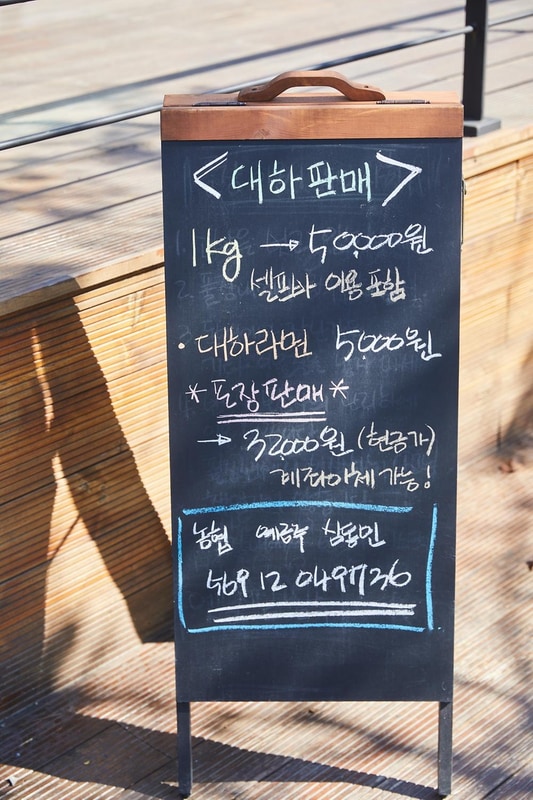 <대하판매>
1kg → 50,000원
셀프바 이용 포함
· 대하라면 5000원
*포장판매*
→ 32,000원 (현금가)
계좌이체 가능!
농협 예금주
569 12 049736